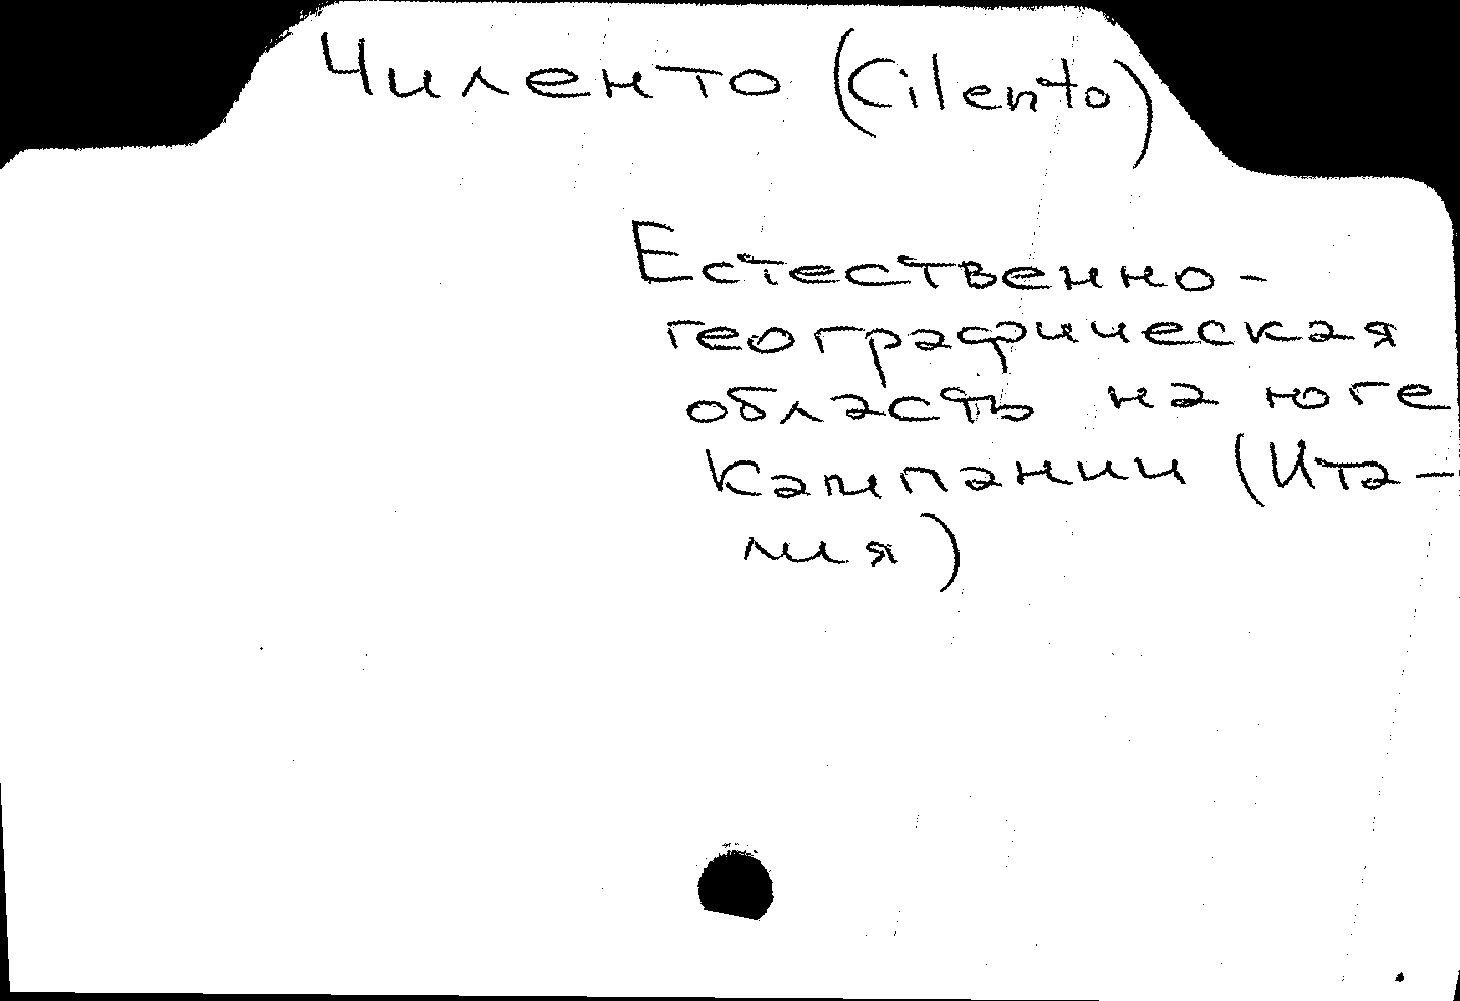 Чиленто (Cilento)
Естественно-
географическая
область на юге
Кампании (Ита-
лия)